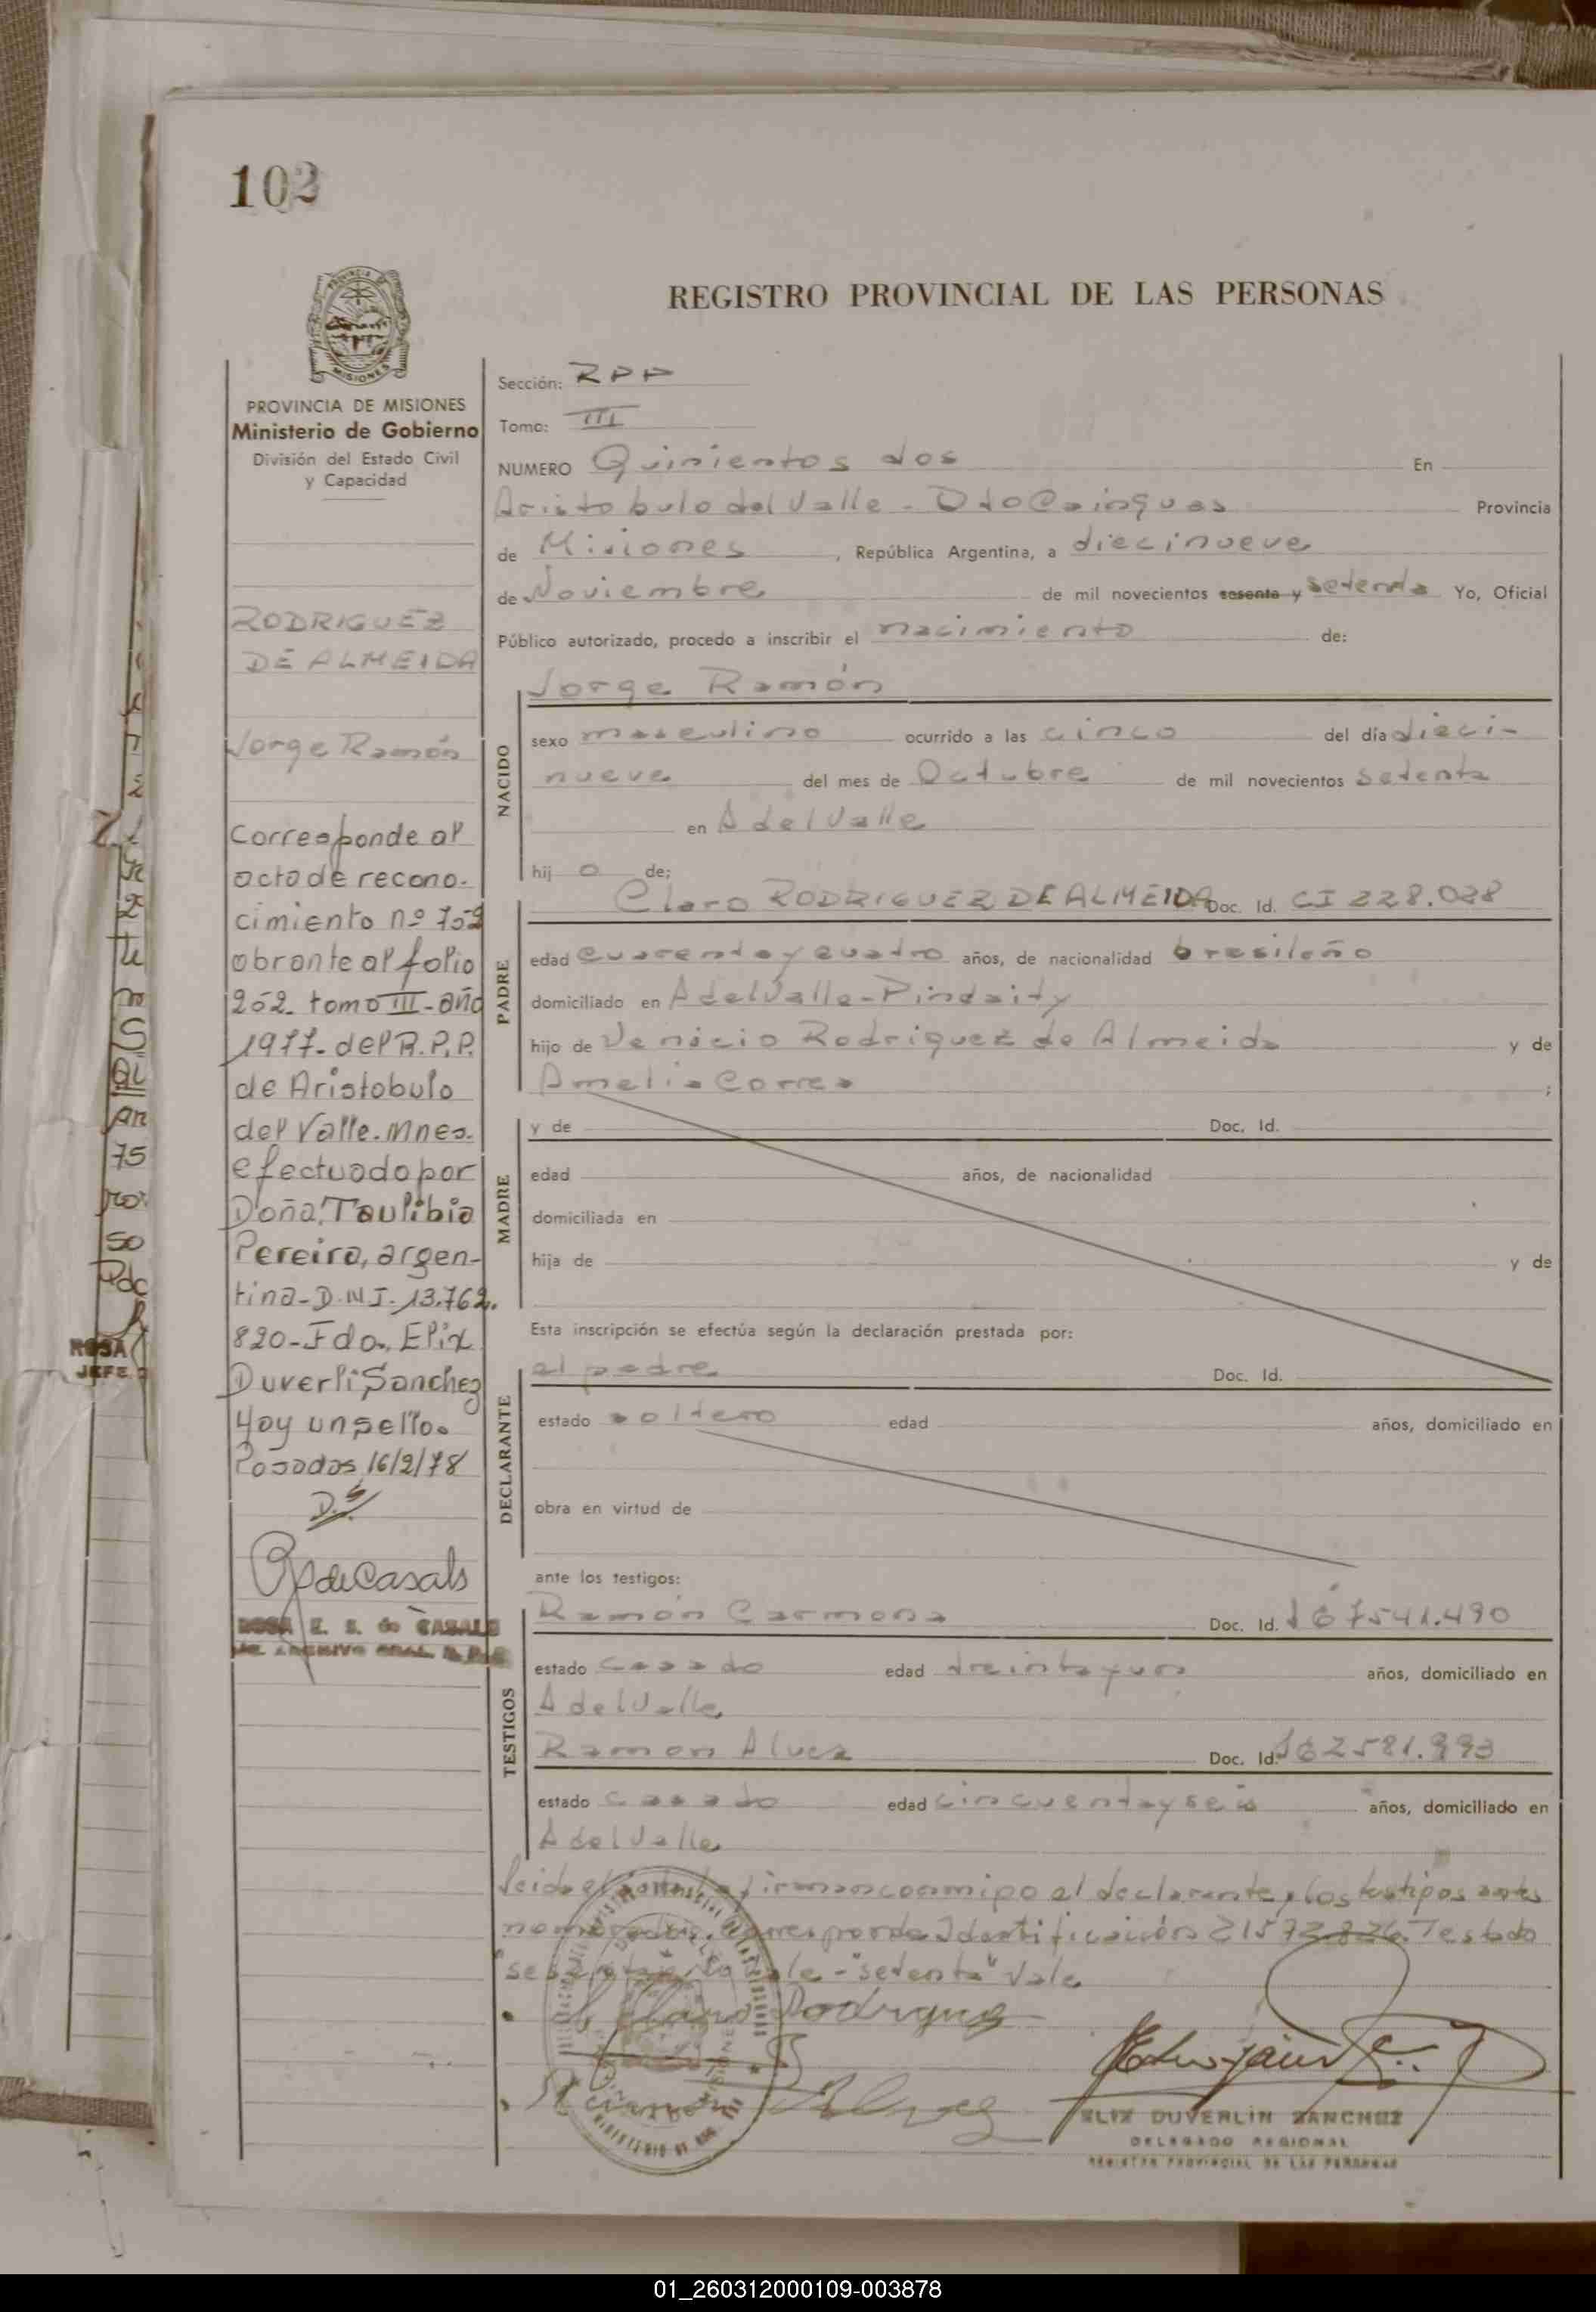 102
PROVINCIA DE MISIONES
Ministerio de Gobierno
División del Estado Civil
y Capacidad
RODRIGUEZ
DE ALMEIDA
Jorge Ramón
Corresponde al
acta de recono-
cimiento nº 752
obrante al folio
252. tomo III - año
1977 - del R.P.P.
de Aristobulo
del Valle. Mnes.
efectuado por
Doña: Taulibia
Pereira, argen-
tina - D.N.I. 13.762.
820 - Fdo. Elix
Duverli Sanchez
Hay un sello.
Posadas 16/2/78
D.S
R P de Casals
ROSA E. S. de CASALS
REGISTRO PROVINCIAL DE LAS PERSONAS
Sección: RPP
Tomo: III
NUMERO Quinientos dos En
Aristobulo del Valle - Dto Cainguas Provincia
de Misiones , República Argentina, a diecinueve
de Noviembre de mil novecientos sesenta y setenta Yo, Oficial
Público autorizado, procedo a inscribir el nacimiento de:
Jorge Ramón
NACIDO
sexo masculino ocurrido a las cinco del día dieci-
nueve del mes de Octubre de mil novecientos setenta
en A del Valle
hij o de;
PADRE
Claro RODRIGUEZ DE ALMEIDA Doc. Id. CI 228.028
edad cuarenta y cuatro años, de nacionalidad brasileño
domiciliado en A del Valle - Pindaity
hijo de Venicio Rodriguez de Almeida y de
Amelia Correa ;
MADRE
y de Doc. Id.
edad años, de nacionalidad
domiciliada en
hija de y de
Esta inscripción se efectúa según la declaración prestada por:
DECLARANTE
el padre Doc. Id.
estado soltero edad años, domiciliado en
obra en virtud de
ante los testigos:
TESTIGOS
Ramón Carmona Doc. Id. 7541.490
estado casado edad treinta y un años, domiciliado en
A del Valle
Ramon Alvez Doc. Id. 2581.993
estado casado edad cincuenta y seis años, domiciliado en
A del Valle
Leida el acta firman conmigo el declarante y los testigos antes
nombrados. Corresponde Identificación 21573.836. Testado
"sesenta y" no vale - "setenta" Vale
Claro Rodrigues
Ramon Alvez
ELIX DUVERLIN SANCHEZ
DELEGADO REGIONAL
REGISTRO PROVINCIAL DE LAS PERSONAS
ROSA
JEFE
01_260312000109-003878